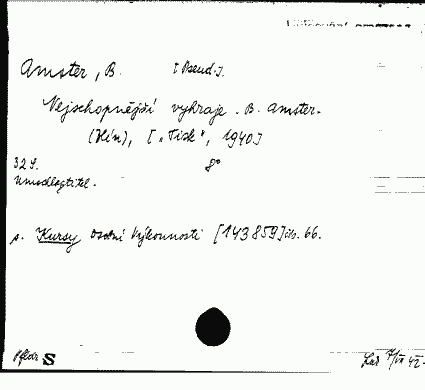 Amster, B. [Pseud.].
Nejschopnější vyhraje. B. Amster.
(Zlín), ["Tisk", 1940]
32 S. 8°
Umschlagtitel.
s. Kursy osobní výkonnosti [143859] čís. 66.
S